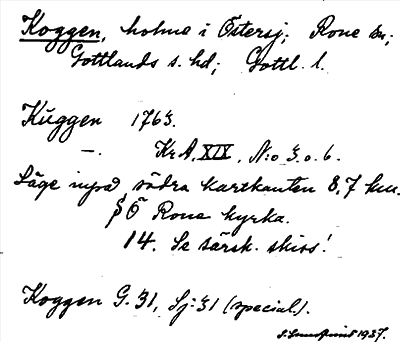 Koggen, holme i Östersj; Rone sn;
Gottlands s. hd; Gottl. l.
Kuggen 1763.
—. KrA, XIX, N:o 3. o. 6.
Läge invid södra kartkanten 8,7 km.
S Ö Rone kyrka.
14. Se särsk. skiss!
Koggen G. 31, Sj: 31 (special.).
1937.